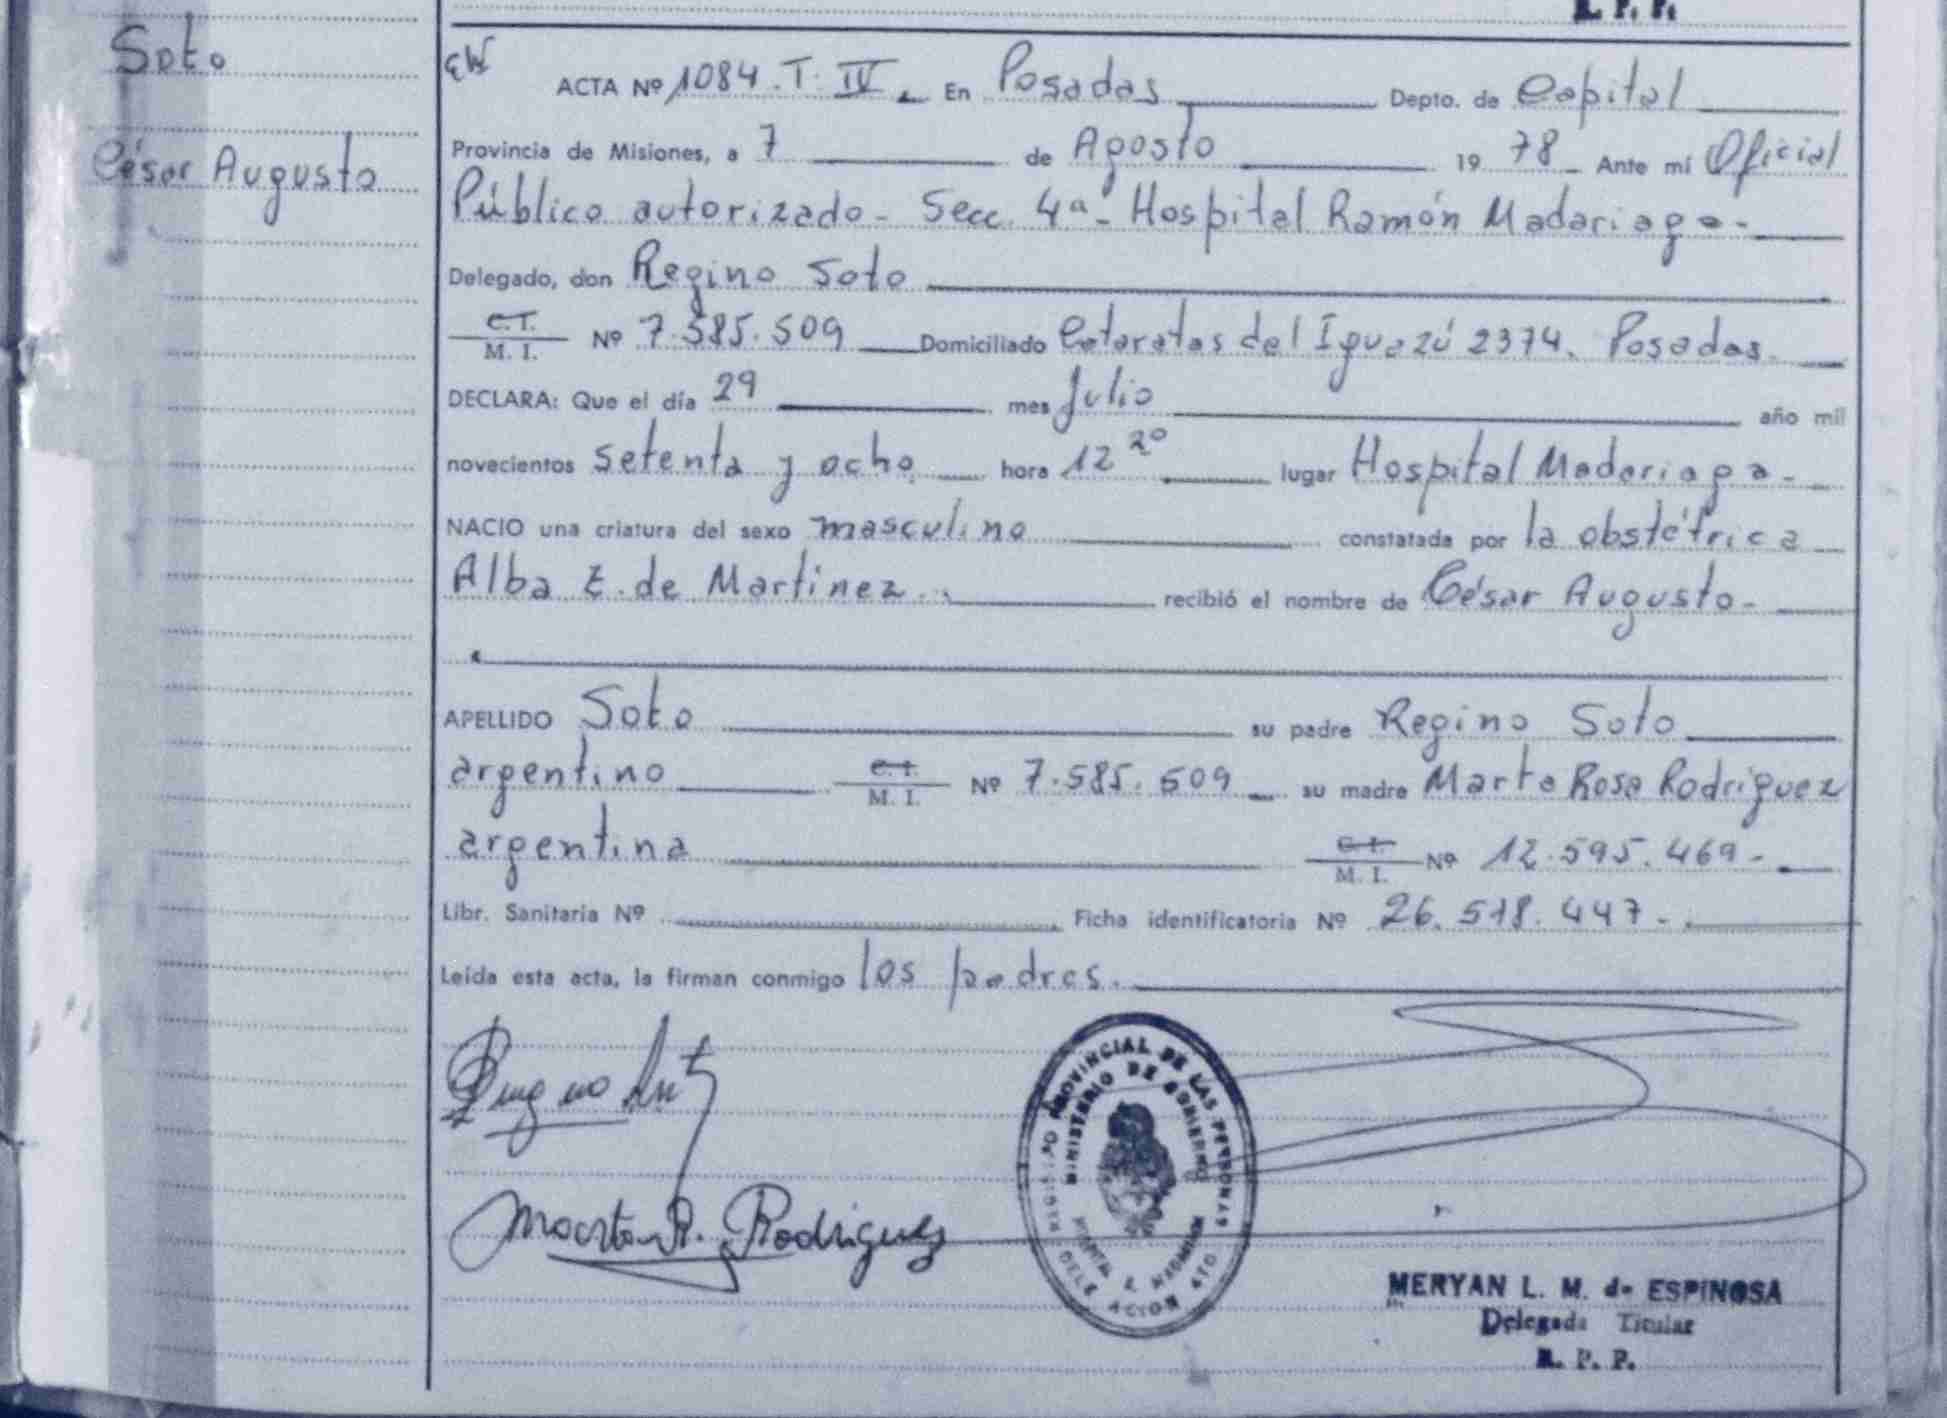 R. P. P.
Soto
César Augusto
ACTA Nº 1084. T. IV. En Posadas Depto. de Capital
Provincia de Misiones, a 7 de Agosto 19 78 Ante mí Oficial
Público autorizado - Secc. 4ª - Hospital Ramón Madariaga -
Delegado, don Regino Soto
C.I. M. I. Nº 7.585.509 Domiciliado Cataratas del Iguazú 2374. Posadas.
DECLARA: Que el día 29 mes Julio año mil
novecientos setenta y ocho hora 12 20 lugar Hospital Madariaga -
NACIO una criatura del sexo masculino constatada por la obstétrica
Alba E. de Martinez. recibió el nombre de César Augusto -
APELLIDO Soto su padre Regino Soto
argentino C. I. M. I. Nº 7.585.509 su madre Marta Rosa Rodríguez
argentina C. I. M. I. Nº 12.595.469 -
Libr. Sanitaria Nº Ficha identificatoria Nº 26.518.447 -
Leída esta acta, la firman conmigo los padres.
Marta R. Rodriguez
PROVINCIAL DE LAS PERSONAS
MINISTERIO DE GOBIERNO
MERYAN L. M. de ESPINOSA
Delegada Titular
R. P. P.